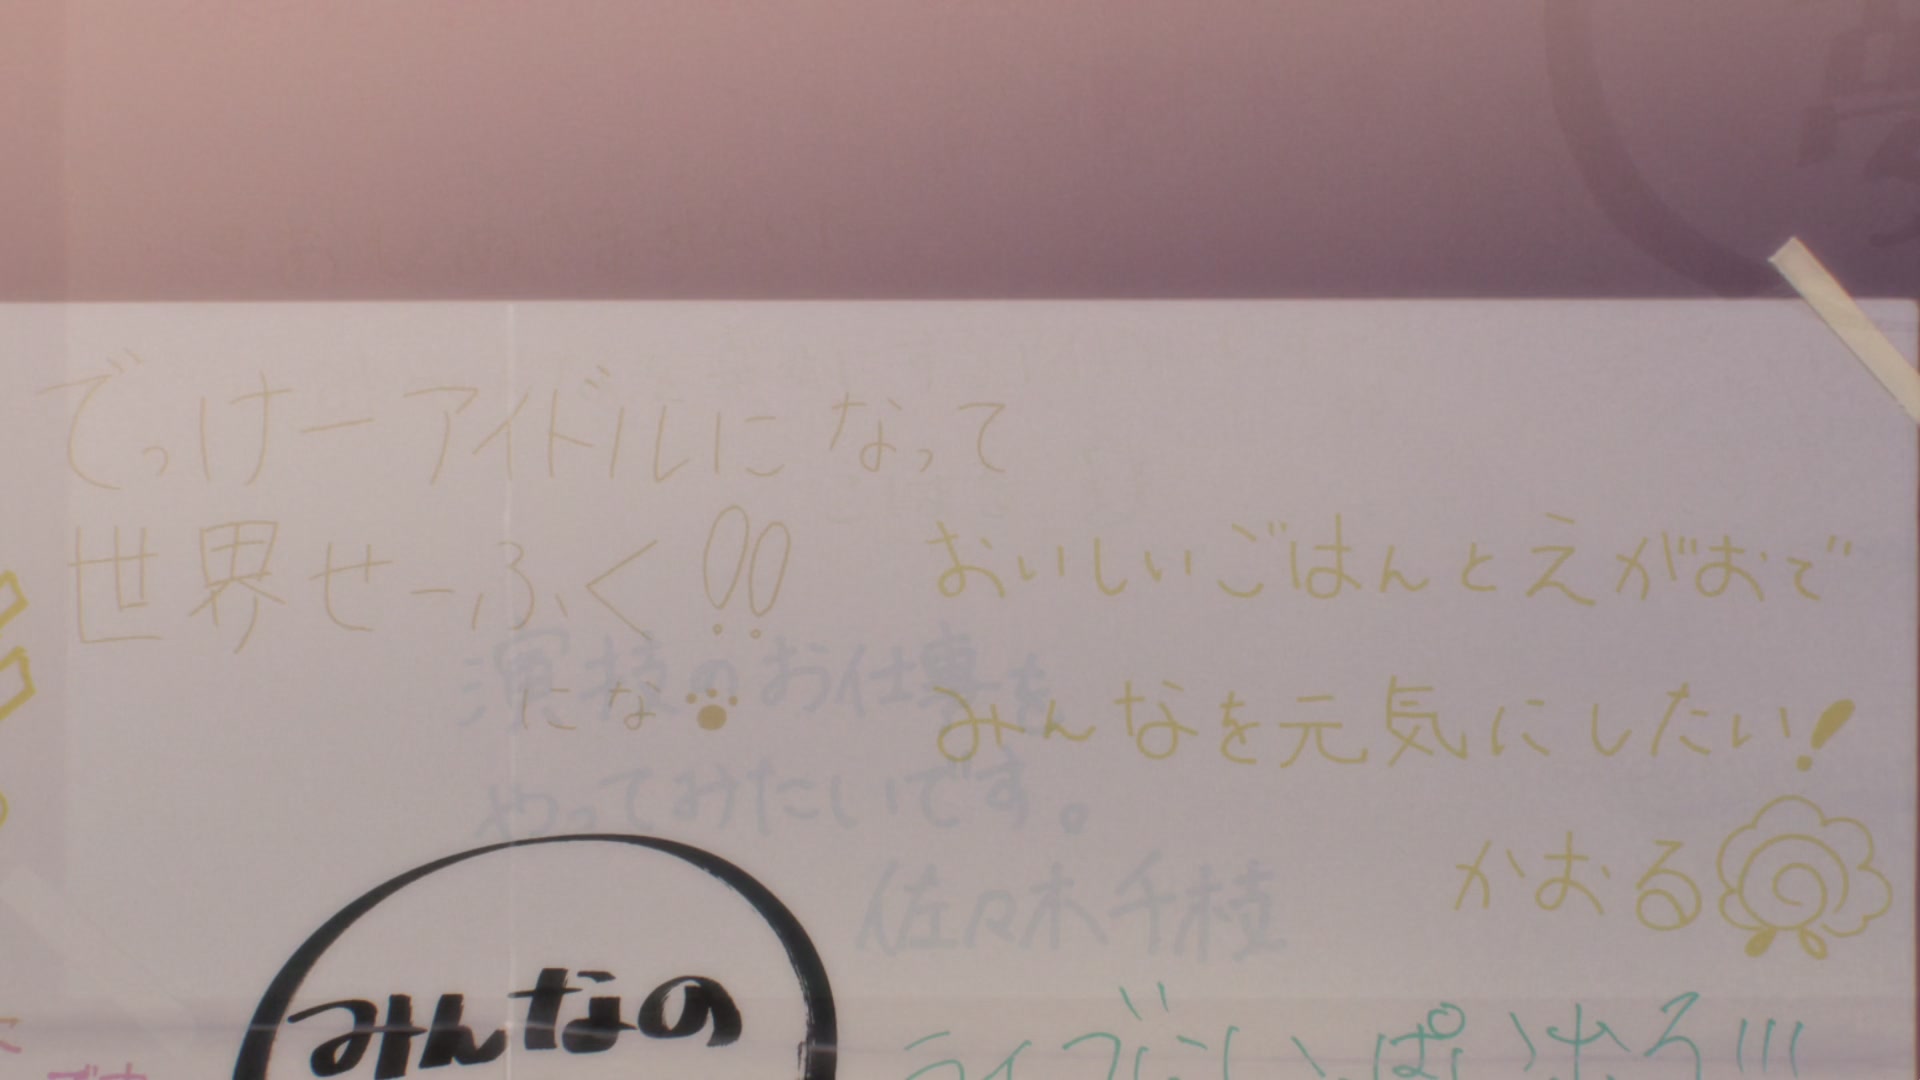 でっけーアイドルになって
世界せーふく!!
にな
おいしいごはんとえがおで
みんなを元気にしたい!
かおる
演技のお仕事を
やってみたいです。
佐々木千枝
みんなの
ライブにいっぱい出る!!!